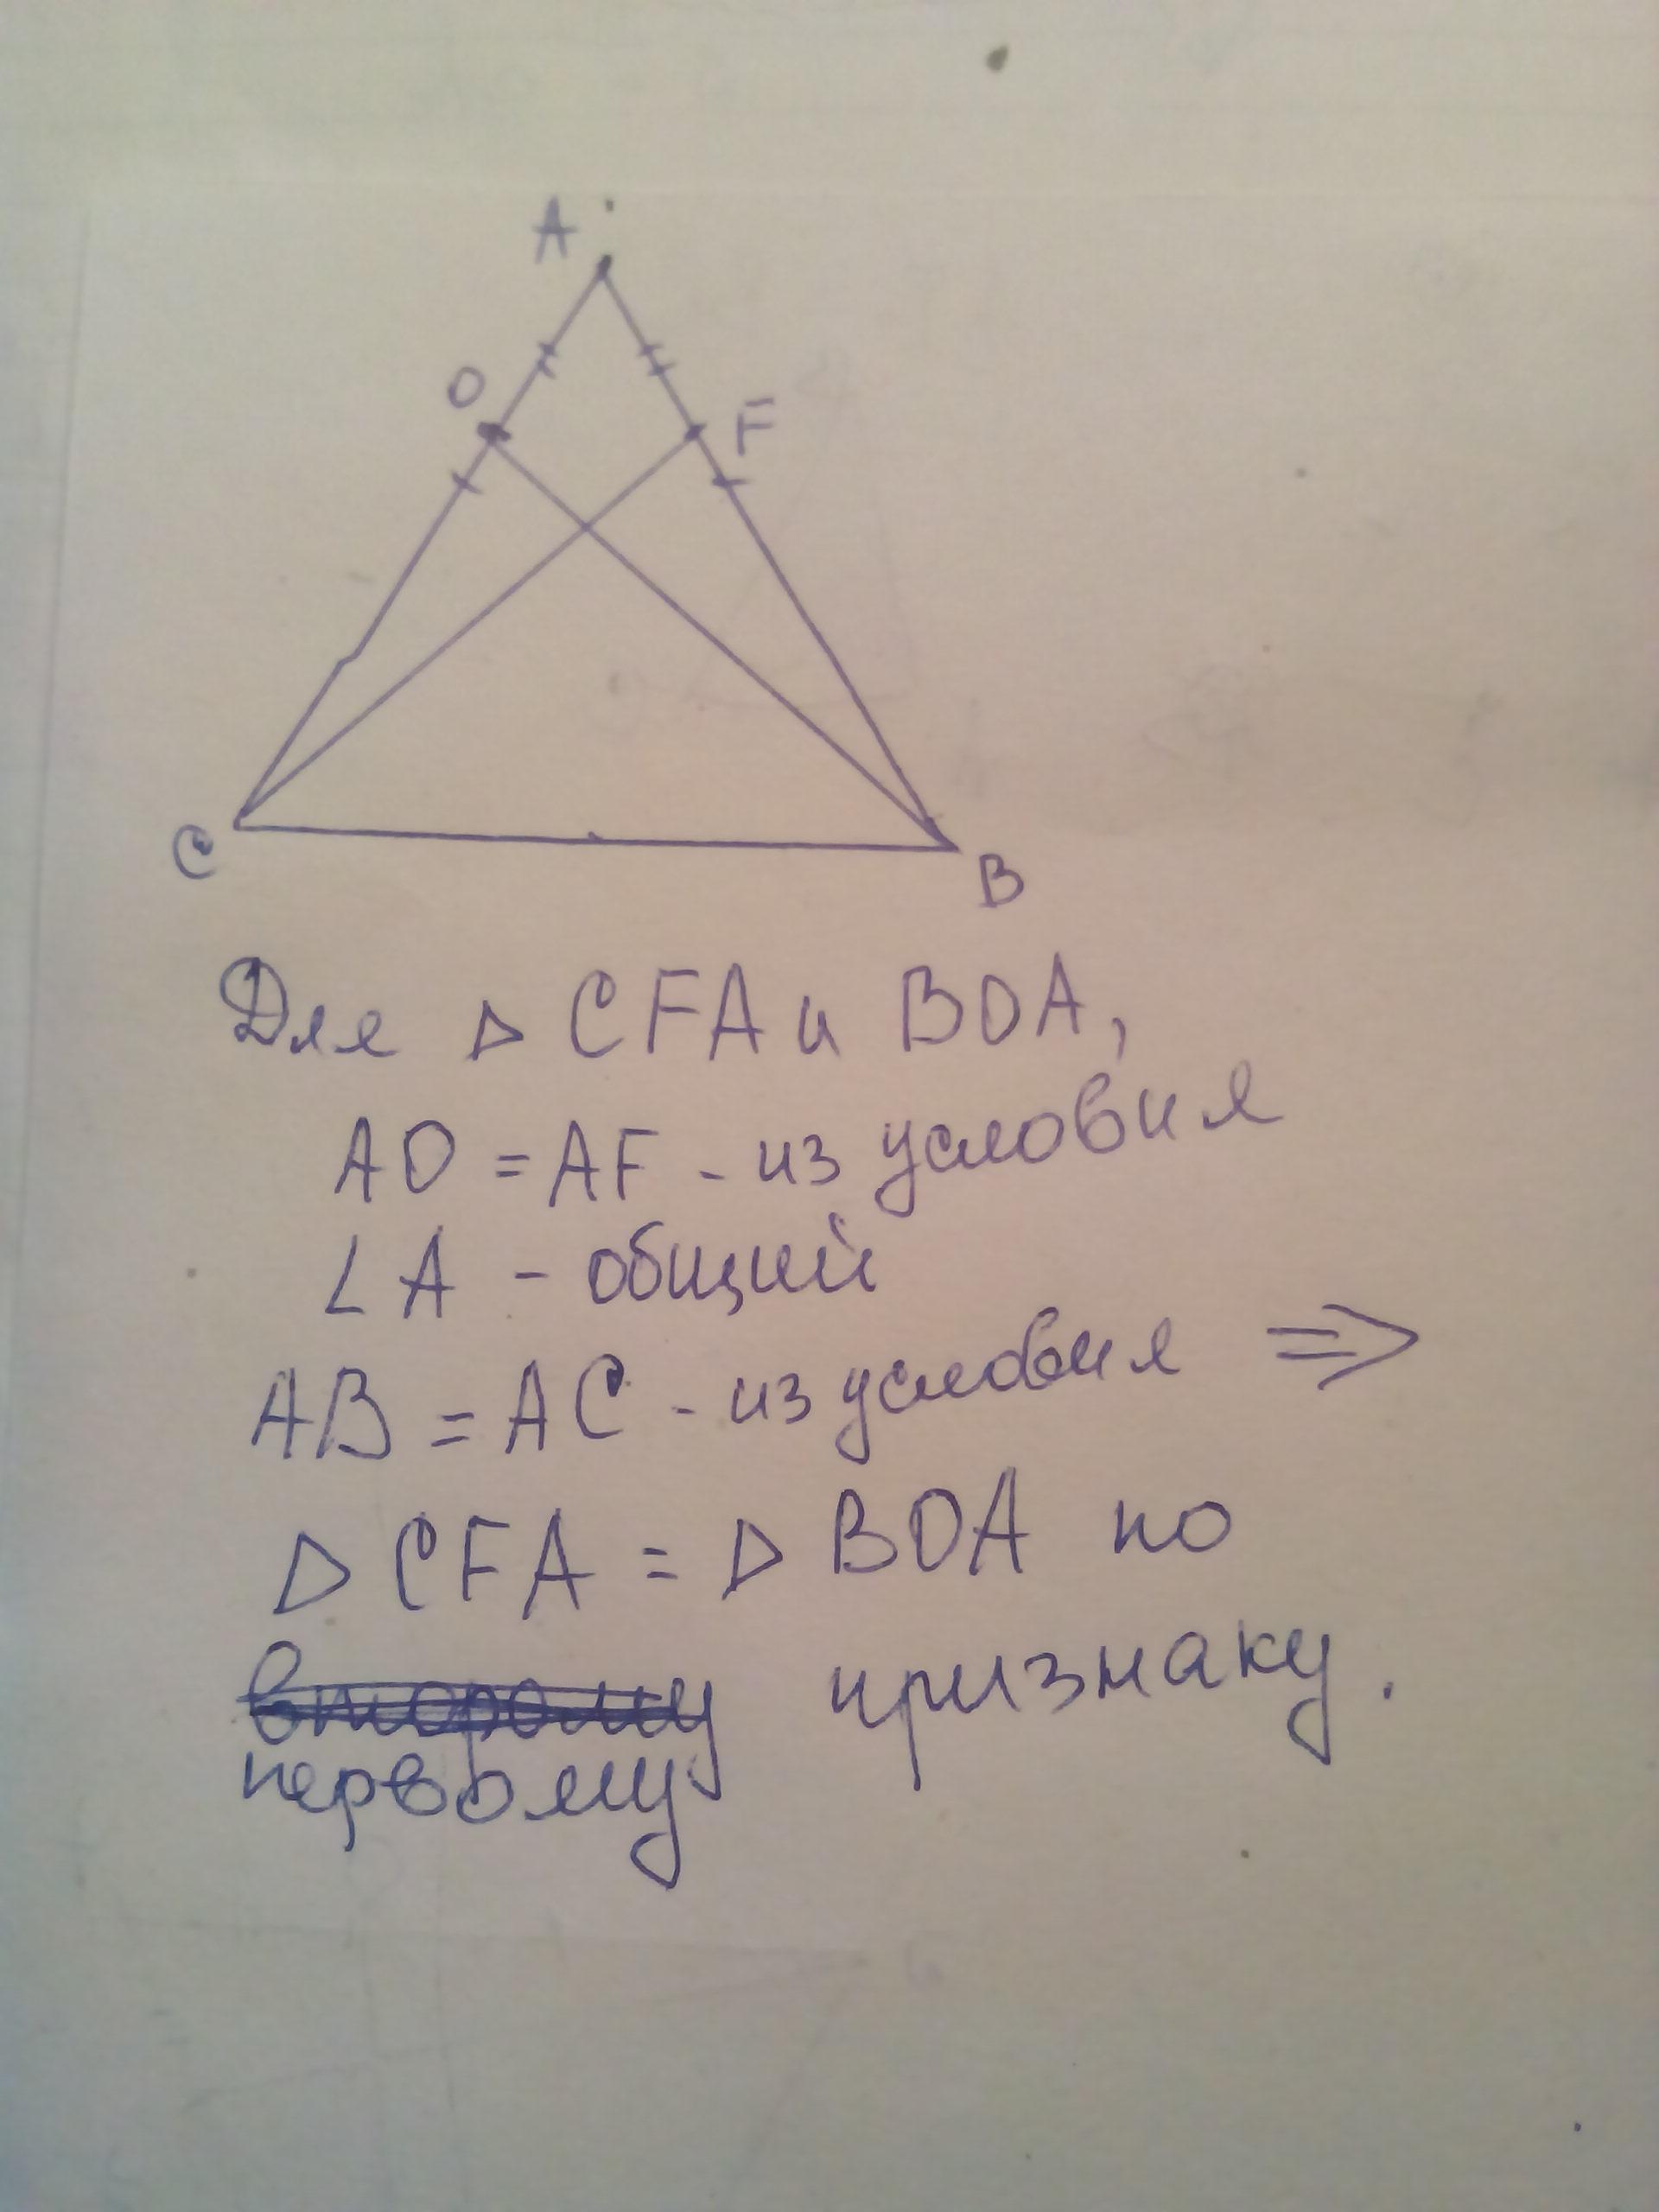 A
O
F
C
B
Для △ CFA и BOA,
AO = AF - из условия
∠A - общий
AB = AC - из условия ⇒
△ CFA = △ BOA по
второму признаку.
первому